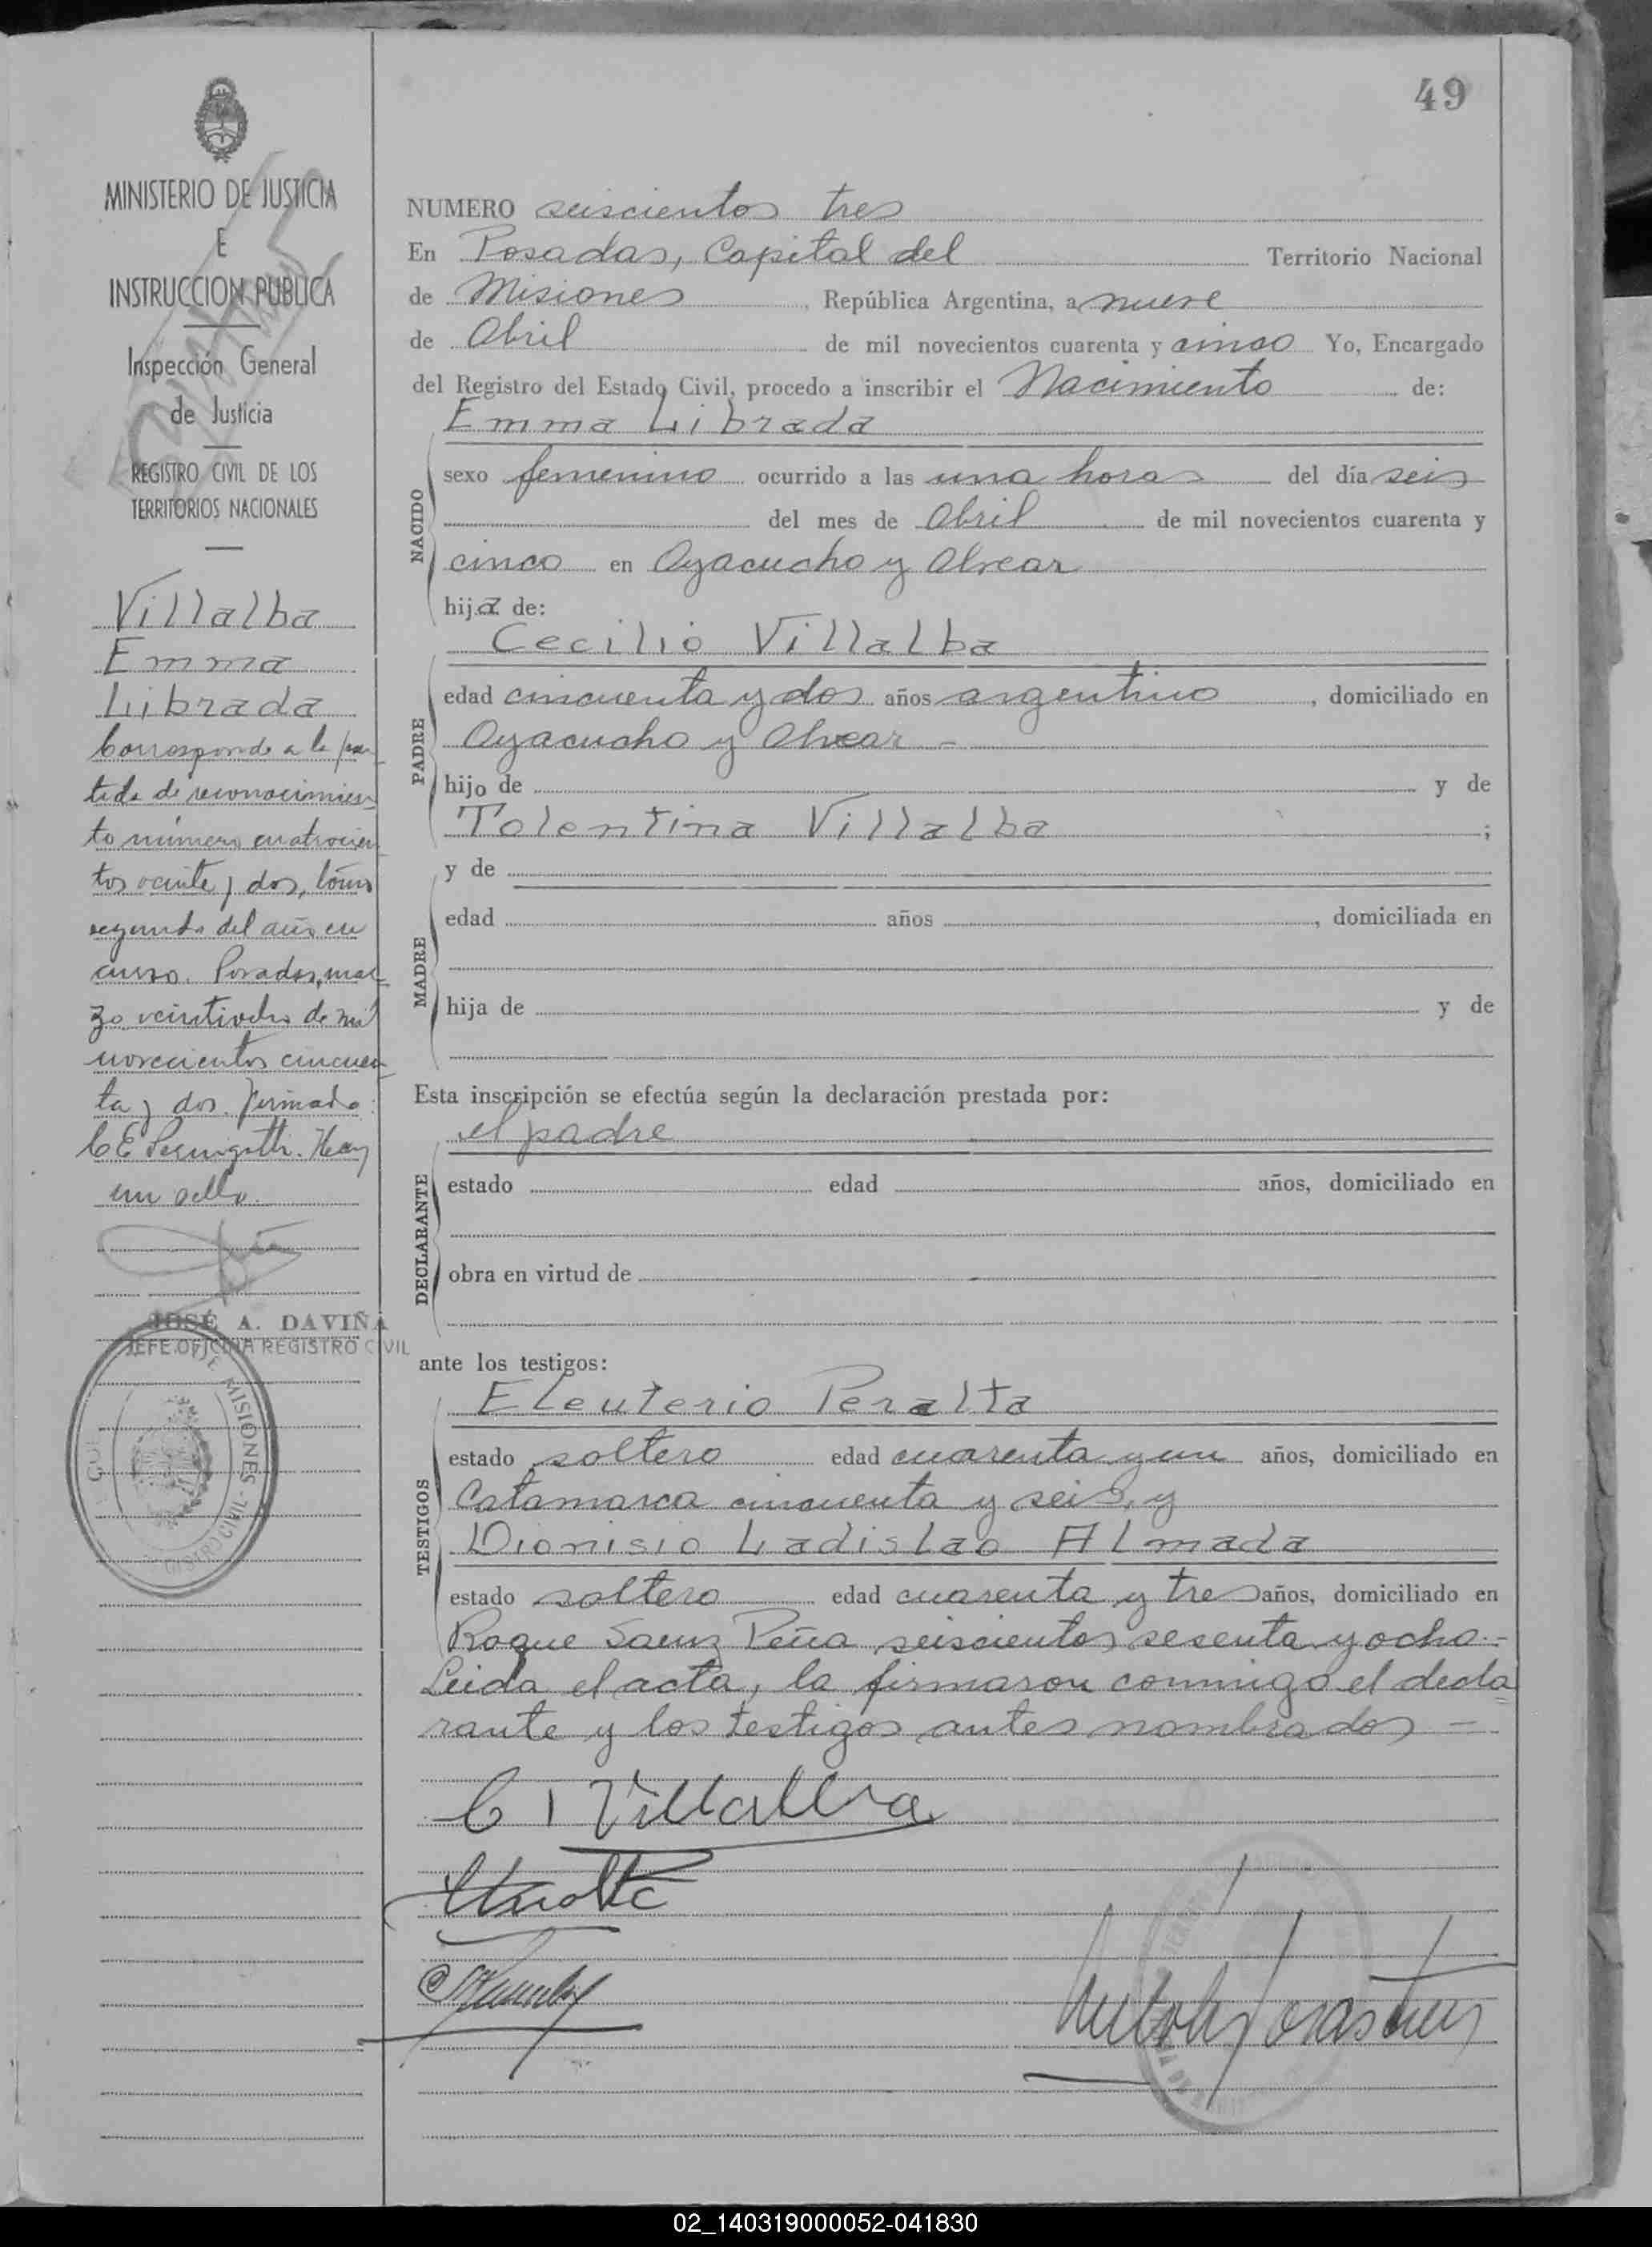 49
MINISTERIO DE JUSTICIA
E
INSTRUCCION PUBLICA
Inspección General
de Justicia
REGISTRO CIVIL DE LOS
TERRITORIOS NACIONALES
Villalba
Emma
Librada
Corresponde a la par-
tida de reconocimien-
to número cuatrocien-
tos veinte y dos, tomo
segundo del año en
curso. Posadas, mar-
zo veintiocho de mil
novecientos cincuen-
ta y dos. Firmado:
C E Hay
un sello.
JOSÉ A. DAVIÑA
JEFE OFICINA REGISTRO CIVIL
MISIONES - REGISTRO CIVIL
NUMERO seiscientos tres
En Posadas, Capital del Territorio Nacional
de Misiones, República Argentina, a nueve
de Abril de mil novecientos cuarenta y cinco Yo, Encargado
del Registro del Estado Civil, procedo a inscribir el Nacimiento de:
Emma Librada
NACIDO
sexo femenino ocurrido a las una horas del día seis
del mes de Abril de mil novecientos cuarenta y
cinco en Ayacucho y Alvear
hija de:
Cecilio Villalba
PADRE
edad cincuenta y dos años argentino, domiciliado en
Ayacucho y Alvear -
hijo de y de
Tolentina Villalba ;
y de
MADRE
edad años , domiciliada en
hija de y de
Esta inscripción se efectúa según la declaración prestada por:
el padre
DECLARANTE
estado edad años, domiciliado en
obra en virtud de
ante los testigos:
Eleuterio Peralta
TESTIGOS
estado soltero edad cuarenta y un años, domiciliado en
Catamarca cincuenta y seis, y
Dionisio Ladislao Almada
estado soltero edad cuarenta y tres años, domiciliado en
Roque Saenz Peña seiscientos sesenta y ocho.-
Leida el acta, la firmaron conmigo el decla-
rante y los testigos antes nombrados -
C I Villalba
02_140319000052-041830